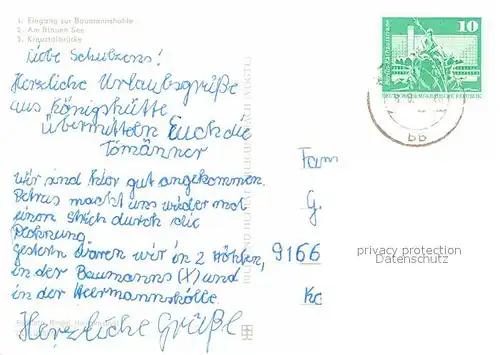 1. Eingang zur Baumannshöhle
2. Am Blauen See
3. Kreuztalbrücke
Liebe Schulzens!
Herzliche Urlaubsgrüße
aus Königshütte
übermitteln Euch die
Tomänner
Wir sind hier gut angekommen.
Petrus macht uns wieder mal
einen Strich durch die
Rechnung.
Gestern waren wir in 2 Höhlen,
in der Baumanns (X) und
in der Heermannshölle.
Herzliche Grüße
10
DEUTSCHE DEMOKRATISCHE REPUBLIK
bb
Fam
G.
9166
privacy protection
Datenschutz